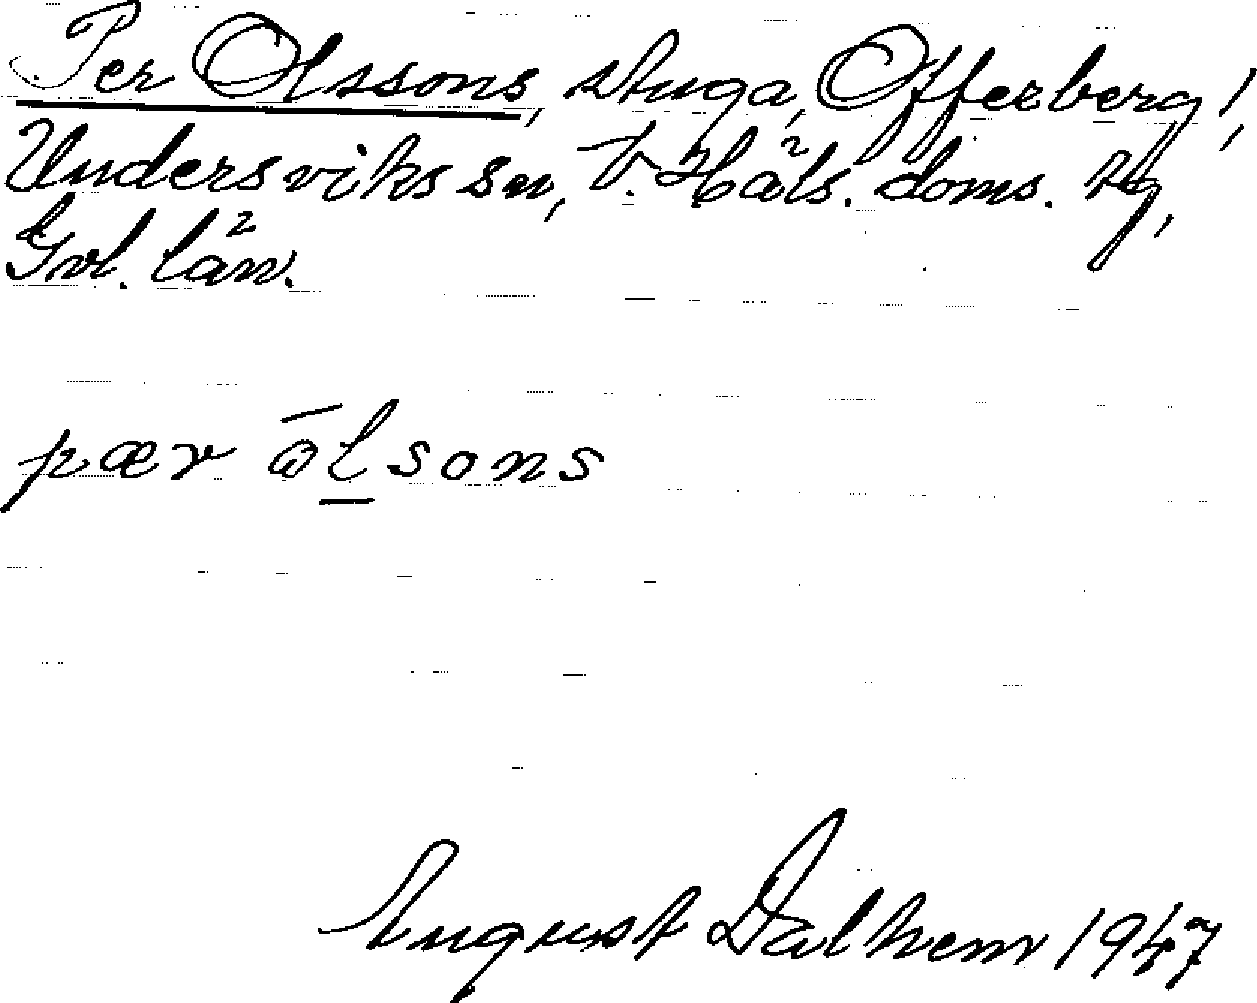 Per Olssons, stuga, Offerberg,
Undersviks sn, V. Häls. doms. tg,
Gvl. län.
pær ōlsons
August Dalhem 1947